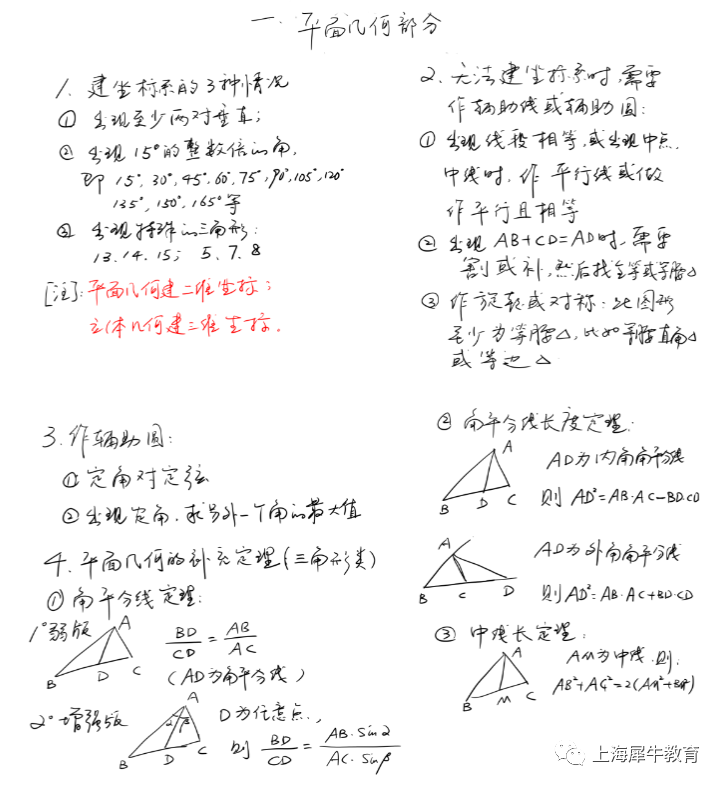 一. 平面几何部分
1. 建坐标系的3种情况
① 出现至少两对垂直;
② 出现15°的整数倍的角,
即 15°, 30°, 45°, 60°, 75°, 90°, 105°, 120°
135°, 150°, 165° 等
③ 出现特殊的三角形:
13. 14. 15; 5. 7. 8
[注]: 平面几何建二维坐标;
立体几何建三维坐标.
2. 无法建坐标系时, 需要
作辅助线或辅助圆:
① 出现线段相等, 或出现中点,
中线时, 作平行线或做
作平行且相等
② 出现 AB+CD=AD时, 需要
割或补, 然后找全等或等腰△
③ 作旋转或对称: 此图形
至少为等腰△, 比如等腰直角△
或等边△
3. 作辅助圆:
① 定角对定弦
② 出现定角, 求另外一个角的最大值
4. 平面几何的补充定理(三角形类)
① 角平分线定理:
1° 弱版
A
B D C
BD/CD = AB/AC
(AD为角平分线)
2° 增强版
A
α β
B D C
D为任意点,
则 BD/CD = AB·sinα/AC·sinβ
② 角平分线长度定理:
A
B D C
AD为内角角平分线
则 AD²=AB·AC−BD·CD
A
B C D
AD为外角角平分线
则AD²=AB·AC+BD·CD
③ 中线长定理:
A
B M C
AM为中线, 则:
AB²+AC²=2(AM²+BM²)
上海犀牛教育